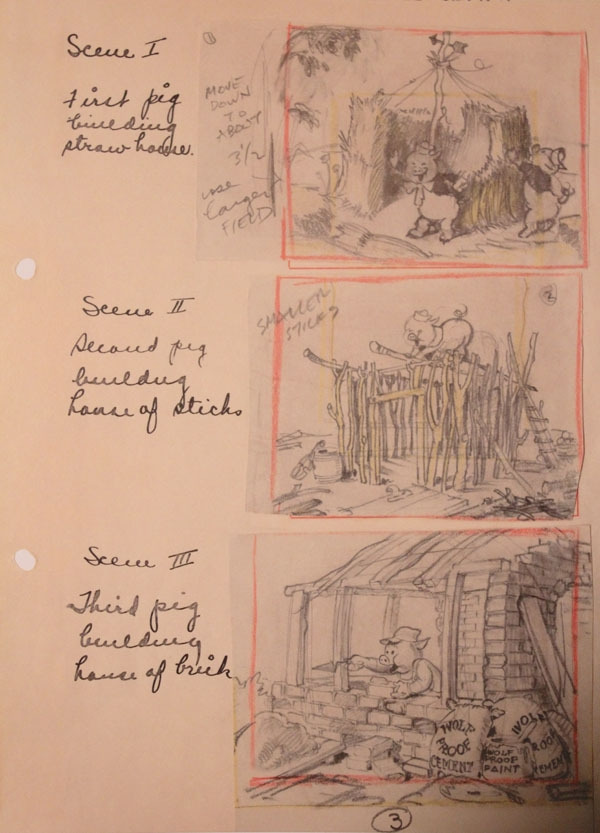 Scene I
First pig
building
straw house.
1
MOVE
DOWN
TO
ABOUT
3 1/2
use
larger
FIELD
Scene II
Second pig
building
house of sticks
SMALLER
STICKS
2
Scene III
Third pig
building
house of brick
WOLF
PROOF
CEMENT
WOLF
PROOF
PAINT
WOLF
PROOF
CEMENT
3